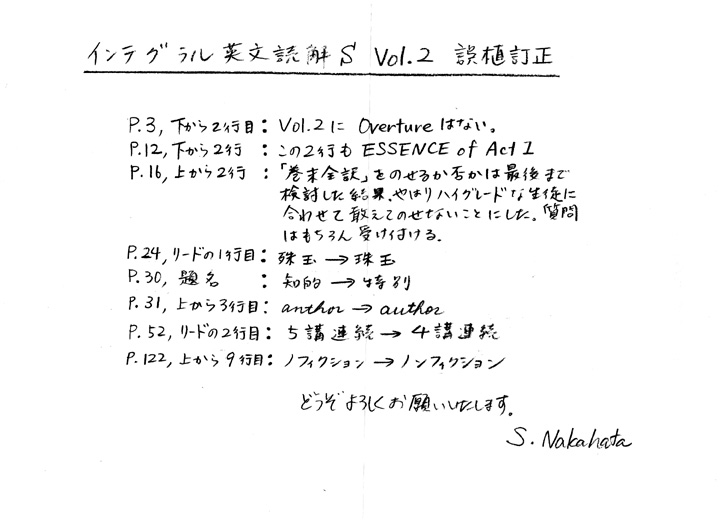 インテグラル英文読解S Vol.2 誤植訂正
P.3, 下から2行目: Vol.2に Overtureはない。
P.12, 下から2行 : この2行も ESSENCE of Act I
P.16, 上から2行 : 「巻末全訳」をのせるか否かは最後まで
検討した結果、やはりハイグレードな生徒に
合わせて敢えてのせないことにした。質問
はもちろん受け付ける。
P.24, リードの1行目: 殊玉 → 珠玉
P.30, 題名 : 知的 → 特別
P.31, 上から3行目: anthor → author
P.52, リードの2行目: 5講連続 → 4講連続
P.122, 上から9行目: ノフィクション → ノンフィクション
どうぞよろしくお願いいたします。
S. Nakahata